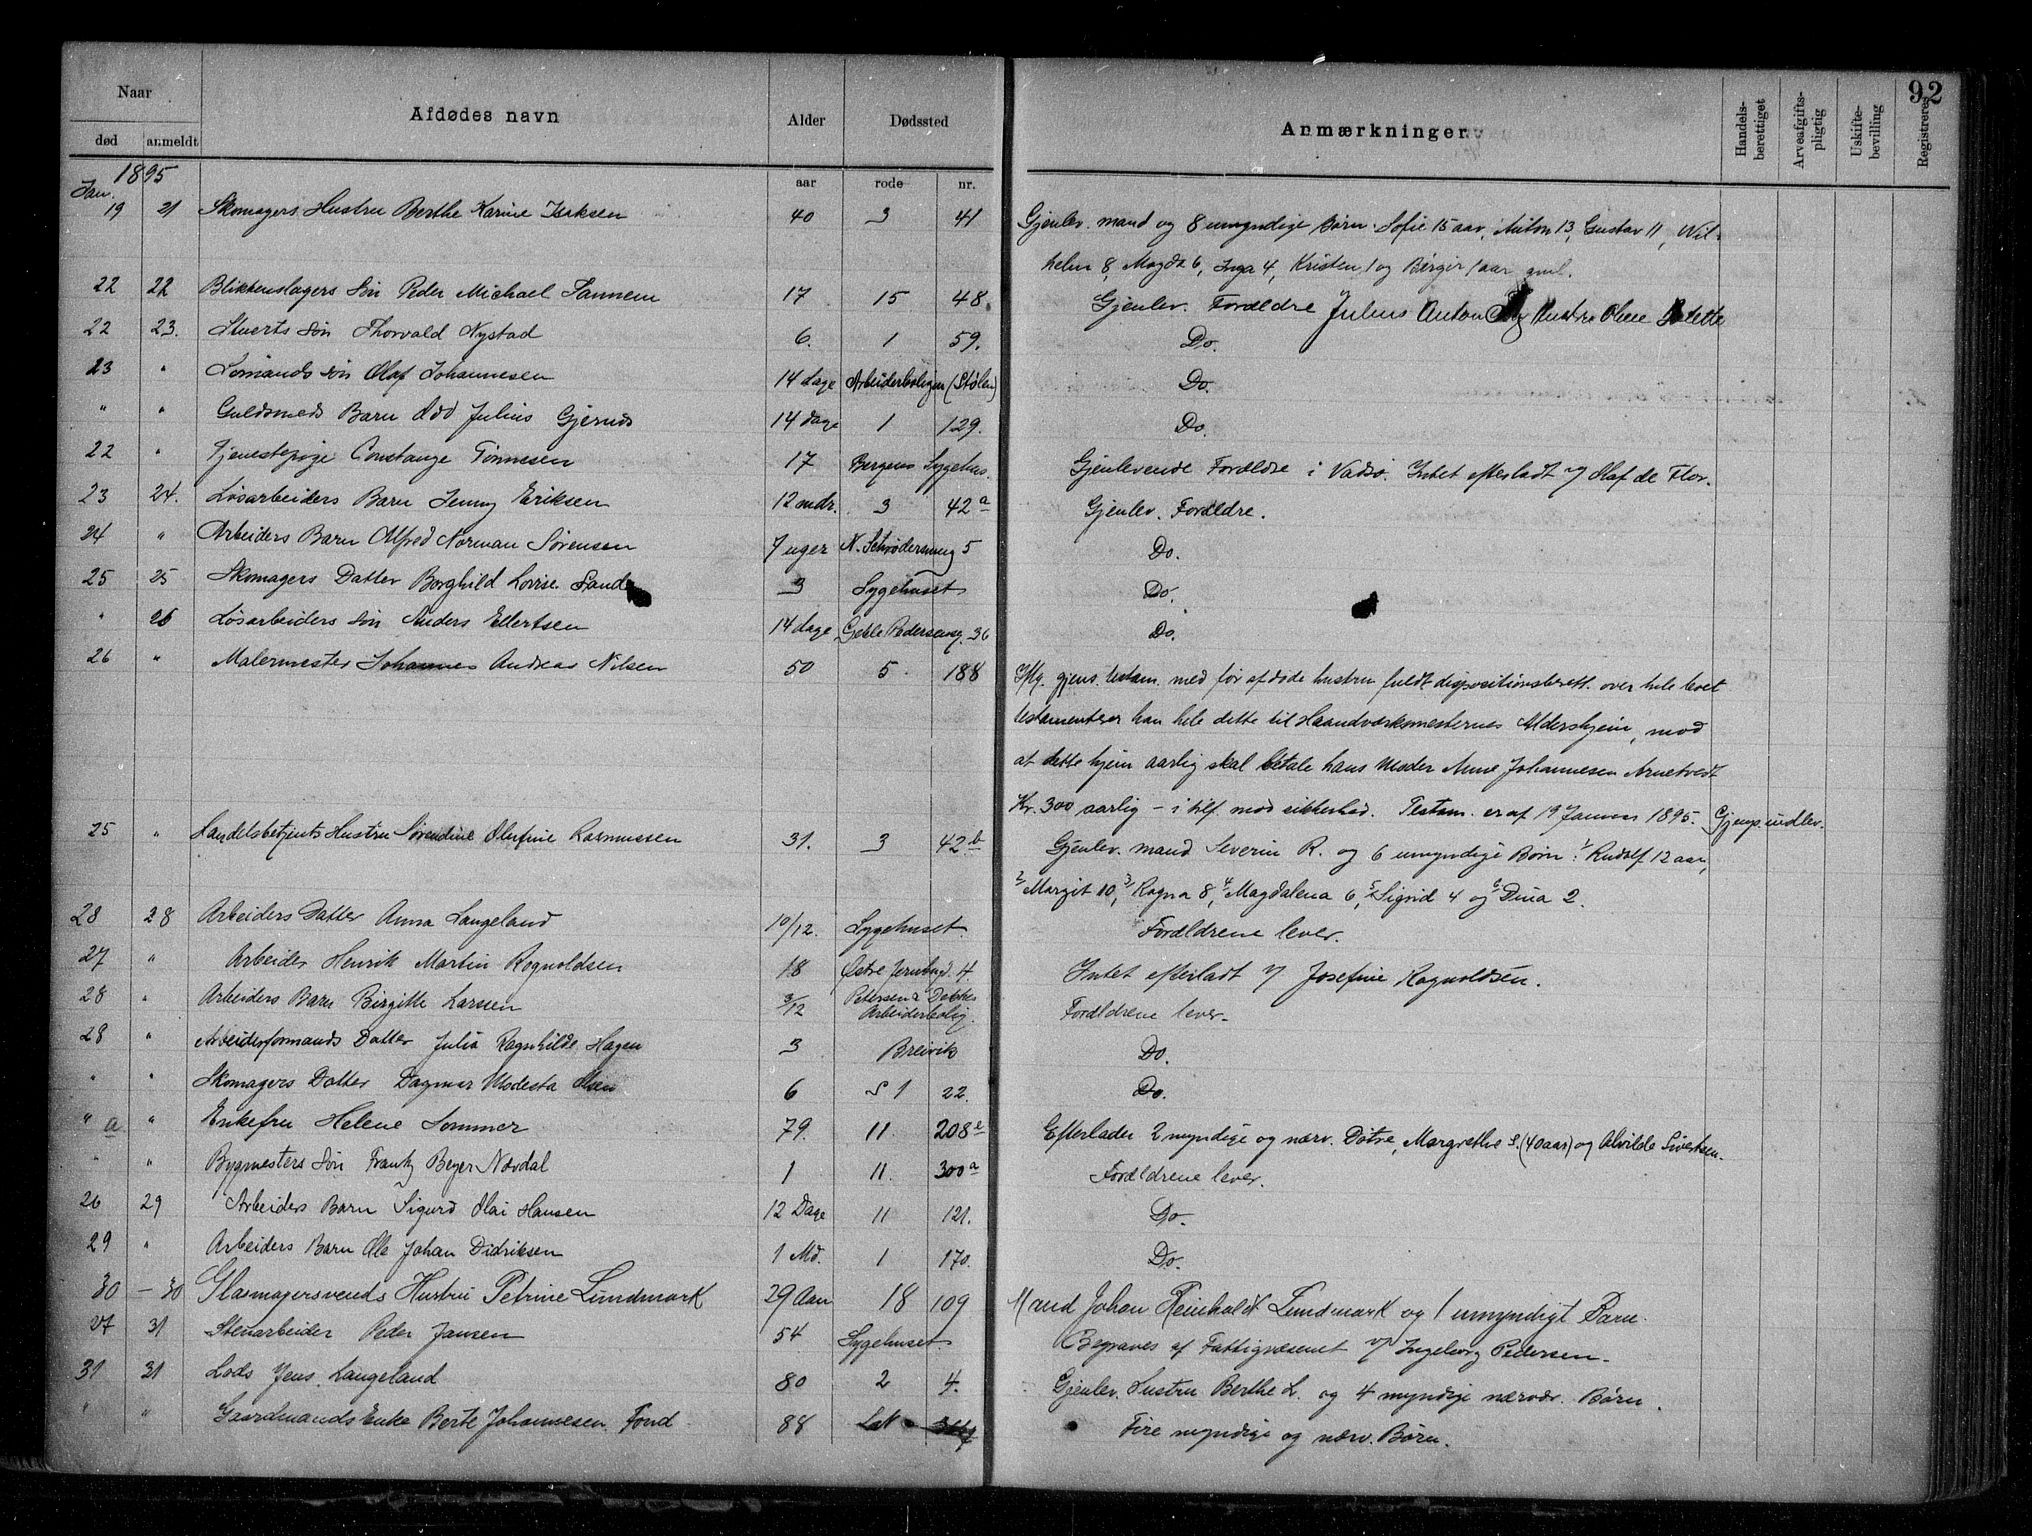 92
Naar
Afdødes navn
Alder
Dødssted
Anmærkninger
Handels-berettiget
Arveafgifts-pligtig
Uskifte-bevilling
Registreret
død anmeldt
aar rode nr.
1895
Jan.
19 21 Skomagers Hustru Berthe Karine Isaksen 40 3 41 Gjenlev. mand og 8 umyndige Børn: Sofie 15 aar, Anton 13, Gustav 11, Wil-
helm 8, Magda 6, Inga 4, Kristen 1 og Birger 1 aar gml.
22 22 Blikkenslagers Søn Peder Michael Sannem 17 15 48 Gjenlev. Forældre Julius Anton og Hustru Oline
22 23. Stuerts Søn Thorvald Nystad 6. 1 59. Do.
23 " Søn Olaf Johannesen 14 dage Arbeiderboligen (Stølen) Do.
" " Guldsmeds Barn Odd Julius Gjerus 14 dage 1 129. Do.
22 " Tjenestepige Constange Tønnesen 17 Bergens Sygehus. Gjenlevende Forældre i Vadsø. Intet efterladt v/ Olaf de Flor.
23 24. Løsarbeiders Barn Jenny Eriksen 12 mdr. 3 42 a Gjenlev. Forældre.
24 " Arbeiders Barn Alfred Norman Sørensen 7 uger N. Schrødersmug 5 Do.
25 25 Skomagers Datter Borghild Lovise Sande 3 Sygehuset Do.
" 26 Løsarbeiders Søn Anders Ellertsen 14 dage Geble Pedersensg. 36 Do.
26 " Malermester Johannes Andreas Nilsen 50 5 188 Iflg. gjens. testam. med før afdøde hustru fuldt dispositionsberett. over hele boet
testamenterer han hele dette til Haandværksmesternes Aldershjem, mod
at dette hjem aarlig skal betale hans Moder Anne Johannesen Arnetvedt
Kr. 300 aarlig - i tilf. mod sikkerhed. Testam. er af 19 Januar 1895. Gjenp. indlev.
25 " Handelsbetjents Hustru Sørendine Olufine Rasmussen 31. 3 42 b Gjenlev. mand Severin R. og 6 umyndige Børn: 1/ Rudolf 12 aar,
2/ Margit 10, 3/ Ragna 8, 4/ Magdalena 6, 5/ Sigrid 4 og 6/ Dina 2.
28 28 Arbeiders Datter Anna Langeland 10/12. Sygehuset. Forældrene lever.
27 " Arbeider Henrik Martin Rognoldsen 18 Østre Jernbgd. 4 Intet efterladt v/ Josefine Rognoldsen.
28 " Arbeiders Barn Birgitte Larsen 3/12 Petersen & Dekkes Arbeiderbolig. Forældrene lever.
28 " Arbeiderformands Datter Julia Ragnhilde Hagen 3 Breivik Do.
" " Skomagers Datter Dagmar Modesta Olsen 6 S 1 22. Do.
" a " Enkefru Helene Sommer 79. 11 208 e Efterlader 2 myndige og nærv. Døtre, Margrethe S. (40 aar) og Alvilde Sivertsen.
" " Bygmesters Søn Frantz Beyer Nævdal 1 11. 300 a Forældrene lever.
26 29 Arbeiders Barn Sigurd Olai Hansen 12 Dage 11 121. Do.
29 " Arbeiders Barn Ole Johan Didriksen 1 Md. 1 170. Do.
30 - 30 Glasmagersvends Hustru Petrine Lundmark 29 Aar 18 109 Mand Johan Reinholdt Lundmark og 1 umyndigt Barn.
27 31 Stenarbeider Peder Jansen 54 Sygehuset. Begraves af Fattigvæsenet v/ Ingeborg Pedersen.
31 31 Lods Jens Langeland 80 2 4. Gjenlev. Hustru Berthe L. og 4 myndige nærvær. Børn.
" " Gaardmands Enke Berte Johannesen Fond 88 Fire myndige og nærv. Børn.